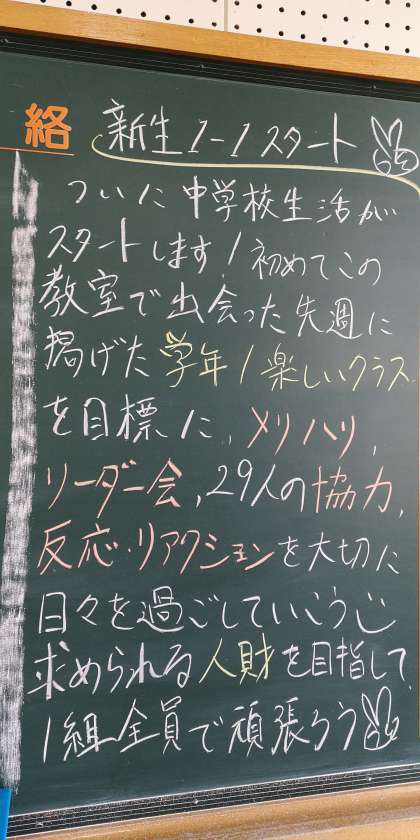 絡
新生1-1スタート
ついに中学校生活が
スタートします!初めてこの
教室で出会った先週に
掲げた学年1楽しいクラス
を目標に、メリハリ、
リーダー会、29人の協力、
反応・リアクションを大切に
日々を過ごしていこうじ
求められる人財を目指して
1組全員で頑張ろう